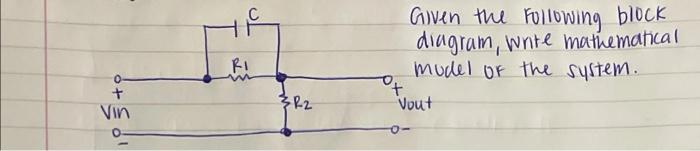 C
Given the following block
diagram, write mathematical
model of the system.
R1
+
Vin
-
R2
+
Vout
-